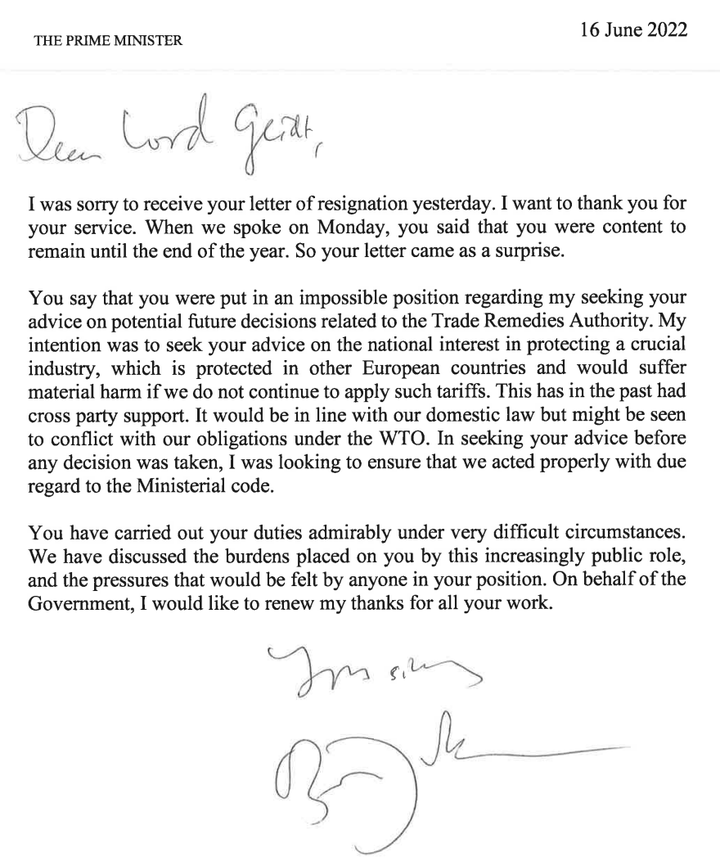 16 June 2022
THE PRIME MINISTER
Dear Lord Geidt,
I was sorry to receive your letter of resignation yesterday. I want to thank you for
your service. When we spoke on Monday, you said that you were content to
remain until the end of the year. So your letter came as a surprise.
You say that you were put in an impossible position regarding my seeking your
advice on potential future decisions related to the Trade Remedies Authority. My
intention was to seek your advice on the national interest in protecting a crucial
industry, which is protected in other European countries and would suffer
material harm if we do not continue to apply such tariffs. This has in the past had
cross party support. It would be in line with our domestic law but might be seen
to conflict with our obligations under the WTO. In seeking your advice before
any decision was taken, I was looking to ensure that we acted properly with due
regard to the Ministerial code.
You have carried out your duties admirably under very difficult circumstances.
We have discussed the burdens placed on you by this increasingly public role,
and the pressures that would be felt by anyone in your position. On behalf of the
Government, I would like to renew my thanks for all your work.